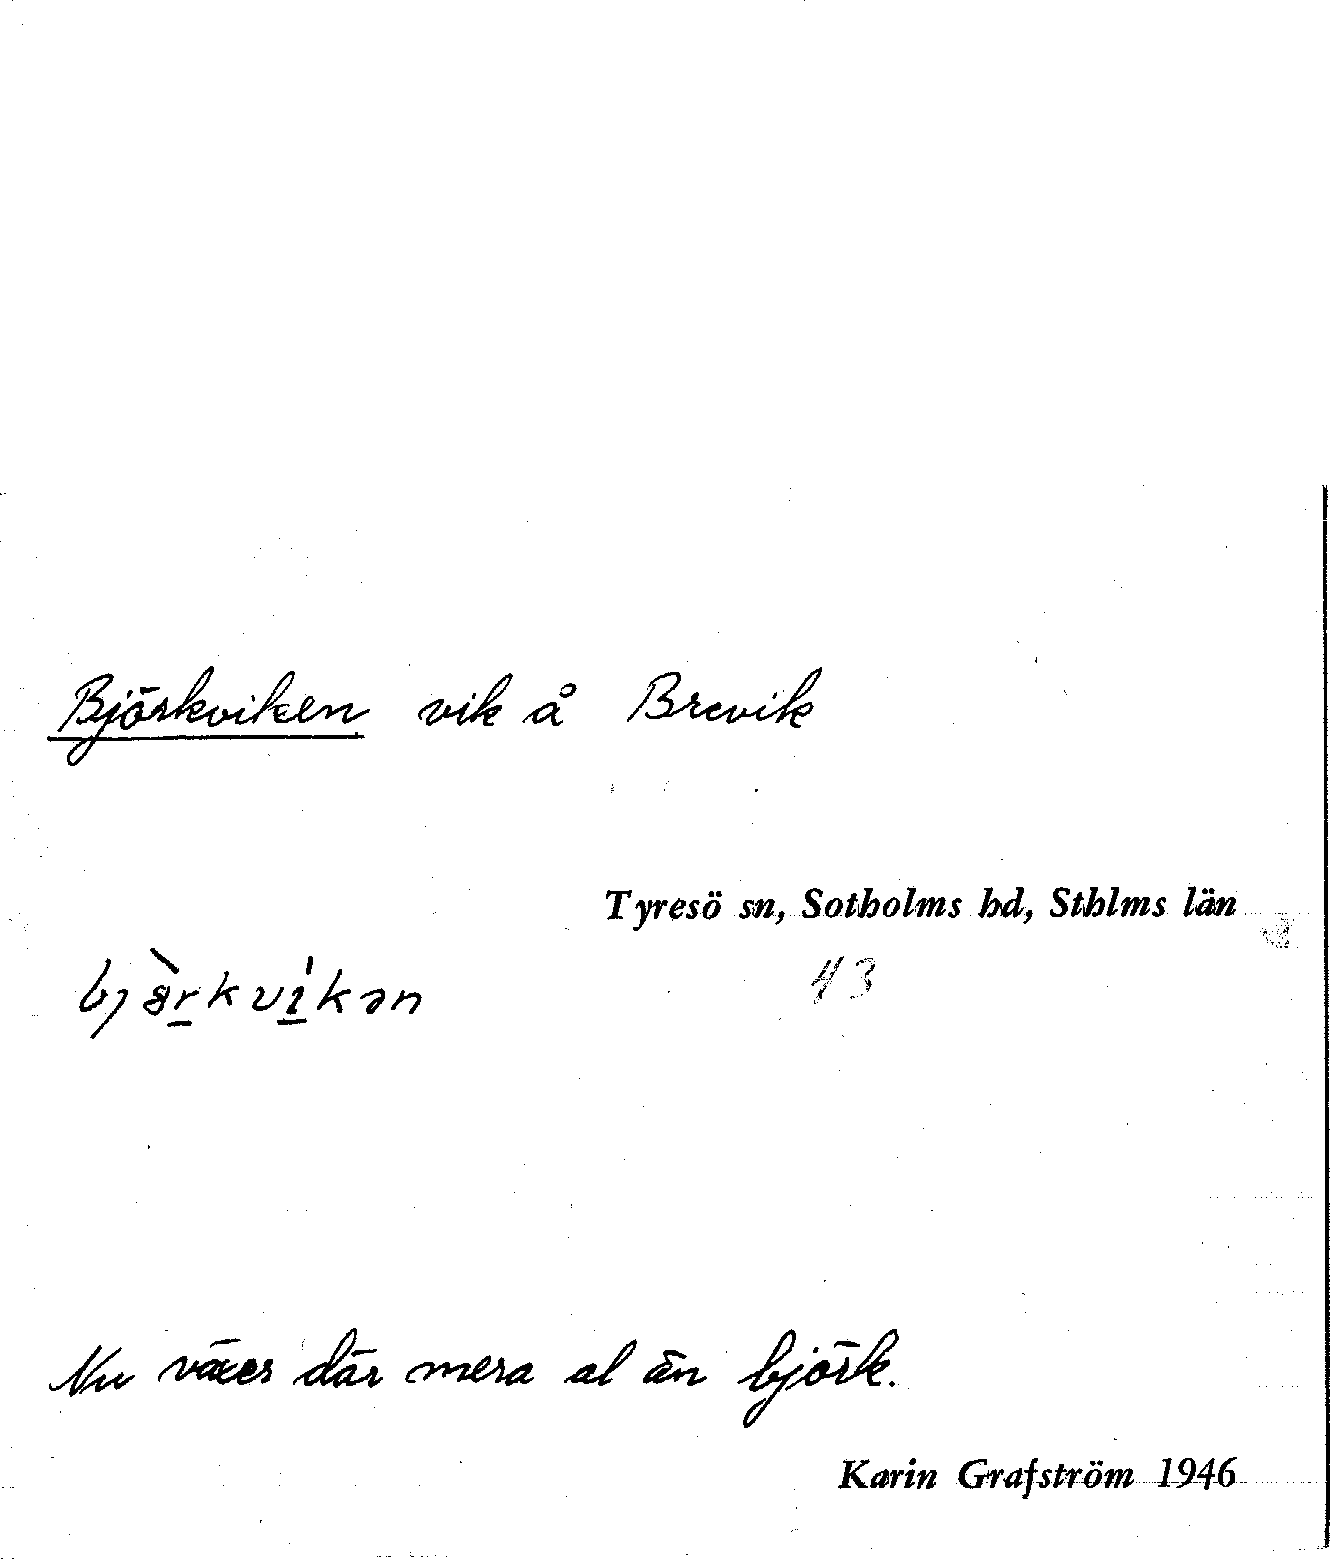 Björkviken vik å Brevik
Tyresö sn, Sotholms hd, Sthlms län
43
Nu växer där mera al än björk.
Karin Grafström 1946